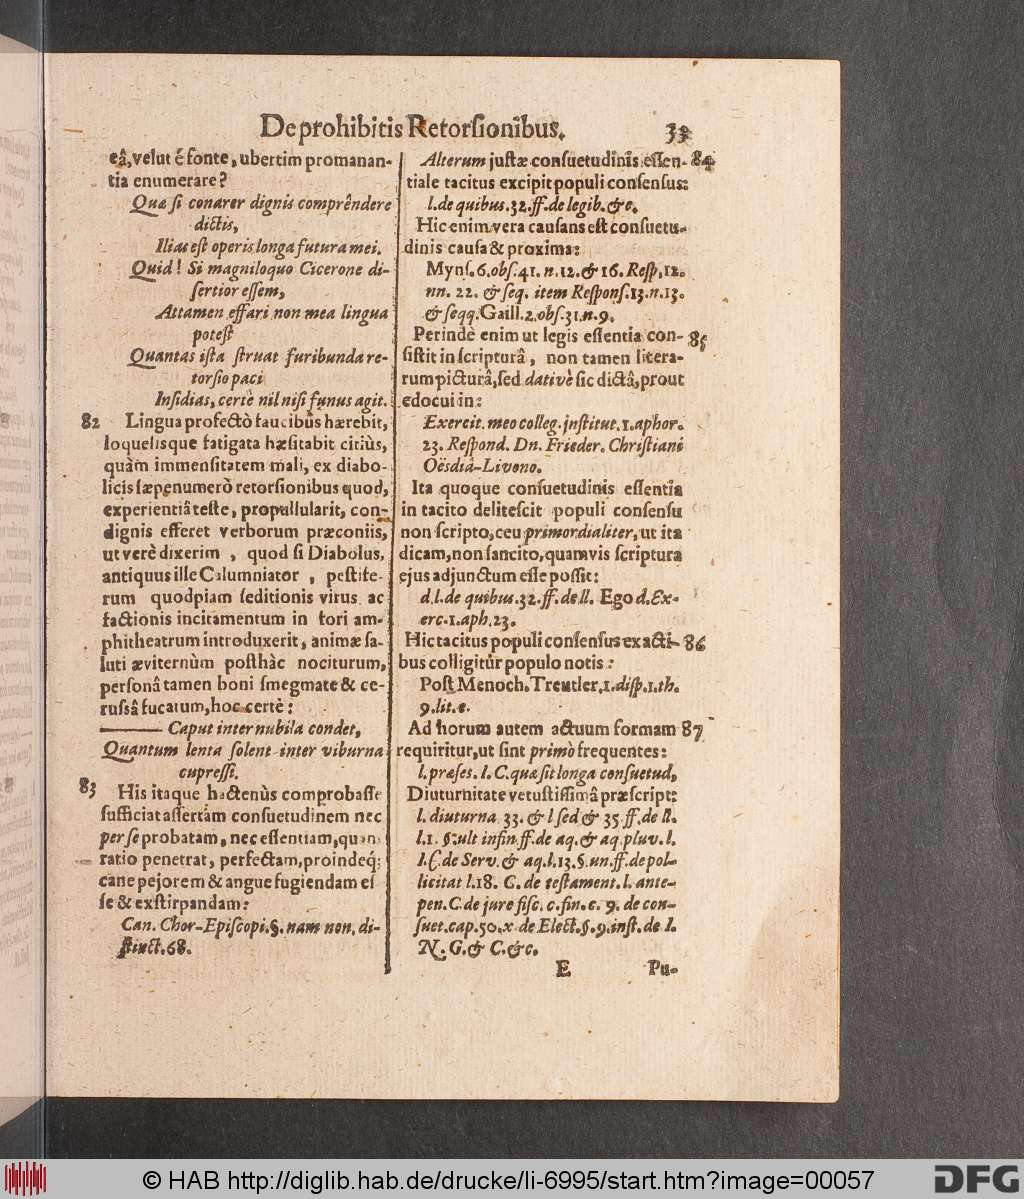 De prohibitis Retorſionibus.
33
eâ, velut é fonte, ubertim promanan-
tia enumerare?
Quæ ſi conarer dignis comprêndere
dictis,
Ilias eſt operis longa futura mei.
Quid! Si magniloquo Cicerone di-
ſertior eſſem,
Attamen effari non mea lingua
poteſt
Quantas iſta ſtruat furibunda re-
torſio paci
Inſidias, certè nil niſi funus agit.
82 Lingua profectò faucibus hærebit,
loquelisque fatigata hæſitabit citiùs,
quàm immenſitatem mali, ex diabo-
licis ſæpenumerò retorſionibus quod,
experientiâ teſte, propullularit, con-
dignis efferet verborum præconiis,
ut verè dixerim, quod ſi Diabolus,
antiquus ille Calumniator, peſtife-
rum quodpiam ſeditionis virus ac
factionis incitamentum in fori am-
phitheatrum introduxerit, animæ ſa-
luti æviternùm poſthàc nociturum,
perſonâ tamen boni ſmegmate & ce-
ruſsâ fucatum, hoc certè:
Caput inter nubila condet,
Quantum lenta ſolent inter viburna
cupreſſi.
83 His itaque hactenùs comprobaſſe
ſufficiat aſſertam conſuetudinem nec
per ſe probatam, nec eſſentiam, quam
ratio penetrat, perfectam, proindeq́;
cane pejorem & angue fugiendam eſ
ſe & exſtirpandam:
Can. Chor-Epiſcopi. §. nam non, di-
ſtinct. 68.
Alterum juſtæ conſuetudinis eſſen- 84
tiale tacitus excipit populi conſenſus:
l. de quibus. 32. ff. de legib. &c.
Hic enim vera cauſans eſt conſuetu-
dinis cauſa & proxima:
Mynſ. 6. obſ. 41. n. 12. & 16. Reſp. 12.
nn. 22. & ſeq. item Reſponſ. 13. n. 13.
& ſeqq. Gaill. 2. obſ. 31. n. 9.
Perindè enim ut legis eſſentia con- 85
ſiſtit in ſcripturâ, non tamen litera-
rum picturâ, ſed dativè ſic dictâ, prout
edocui in:
Exercit. meo colleg. juſtitut. 1. aphor.
23. Reſpond. Dn. Frieder. Chriſtiani
Oësdiâ-Livono.
Ita quoque conſuetudinis eſſentia
in tacito deliteſcit populi conſenſu
non ſcripto, ceu primordialiter, ut ita
dicam, non ſancito, quamvis ſcriptura
ejus adjunctum eſſe poſſit:
d. l. de quibus. 32. ff. de ll. Ego d. Ex-
erc. 1. aph. 23.
Hic tacitus populi conſenſus ex acti- 86
bus colligitur populo notis:
Poſt Menoch. Treutler. 1. diſp. 1. th.
9. lit. e.
Ad horum autem actuum formam 87
requiritur, ut ſint primò frequentes:
l. præſes. 1. C. quæ ſit longa conſuetud,
Diuturnitate vetuſtiſſimâ præſcript:
l. diuturna 33. & l ſed & 35 ff. de ll.
l. 1. §. ult in fin. ff. de aq. & aq. pluv. l.
1. C. de Serv. & aq. l. 13. §. un. ff. de pol-
licitat l. 18. C. de teſtament. l. ante-
pen. C. de jure fiſc. c. fin. e. 9. de con-
ſuet. cap. 50. x de Elect. §. 9. inſt. de l.
N. G. & C. &c.
E Pu-
© HAB http://diglib.hab.de/drucke/li-6995/start.htm?image=00057
DFG